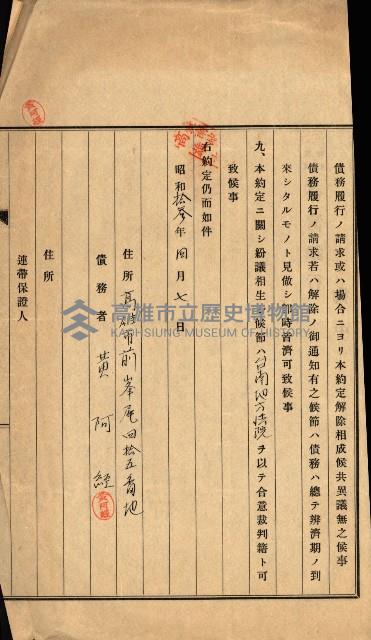 債務履行ノ請求或ハ場合ニヨリ本約定解除相成候共異議無之候事
債務履行ノ請求若ハ解除ノ御通知有之候節ハ債務ハ總テ辨濟期ノ到
來シタルモノト見做シ即時皆濟可致候事
九、本約定ニ關シ紛議相生シ候節ハ台南地方法院ヲ以テ合意裁判籍ト可
致候事
右約定仍而如件
昭和拾參年四月七日
住所 高雄市前峯尾四拾五番地
債務者 黄阿經
住所
連帶保證人
高雄市立歷史博物館
KAOHSIUNG MUSEUM OF HISTORY